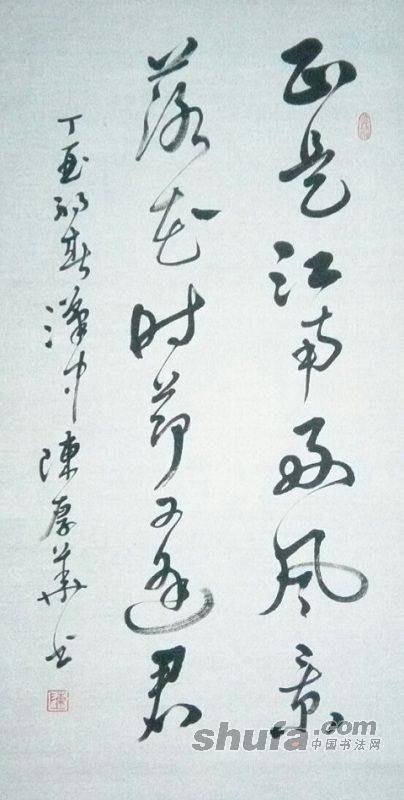 正是江南好风景
落花时节又逢君
丁酉初春汉中陈厚华书
陈
shufa.com
中国书法网